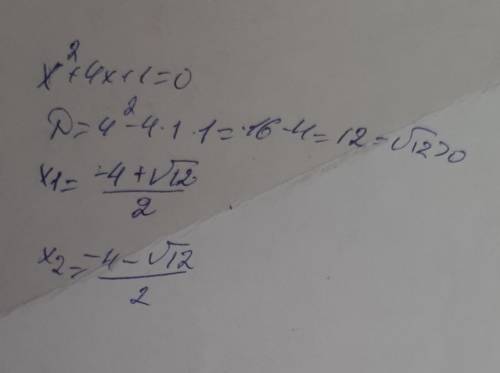 x²+4x+1=0
D=4²-4·1·1=16-4=12=√12>0
x1=(-4+√12)/2
x2=(-4-√12)/2